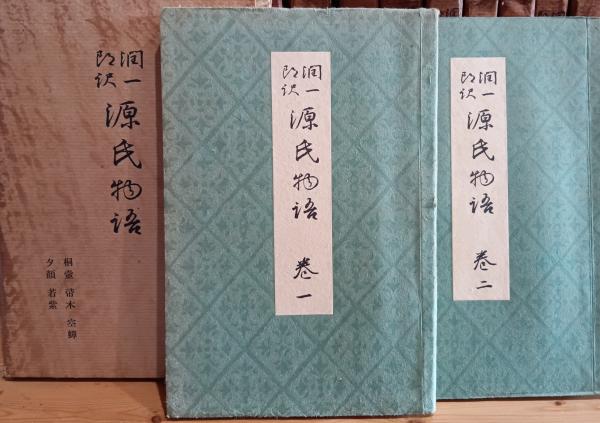 潤一郎訳
源氏物語
桐壺 帚木 空蝉
夕顔 若紫
潤一郎訳
源氏物語
巻一
潤一郎訳
源氏物語
巻二